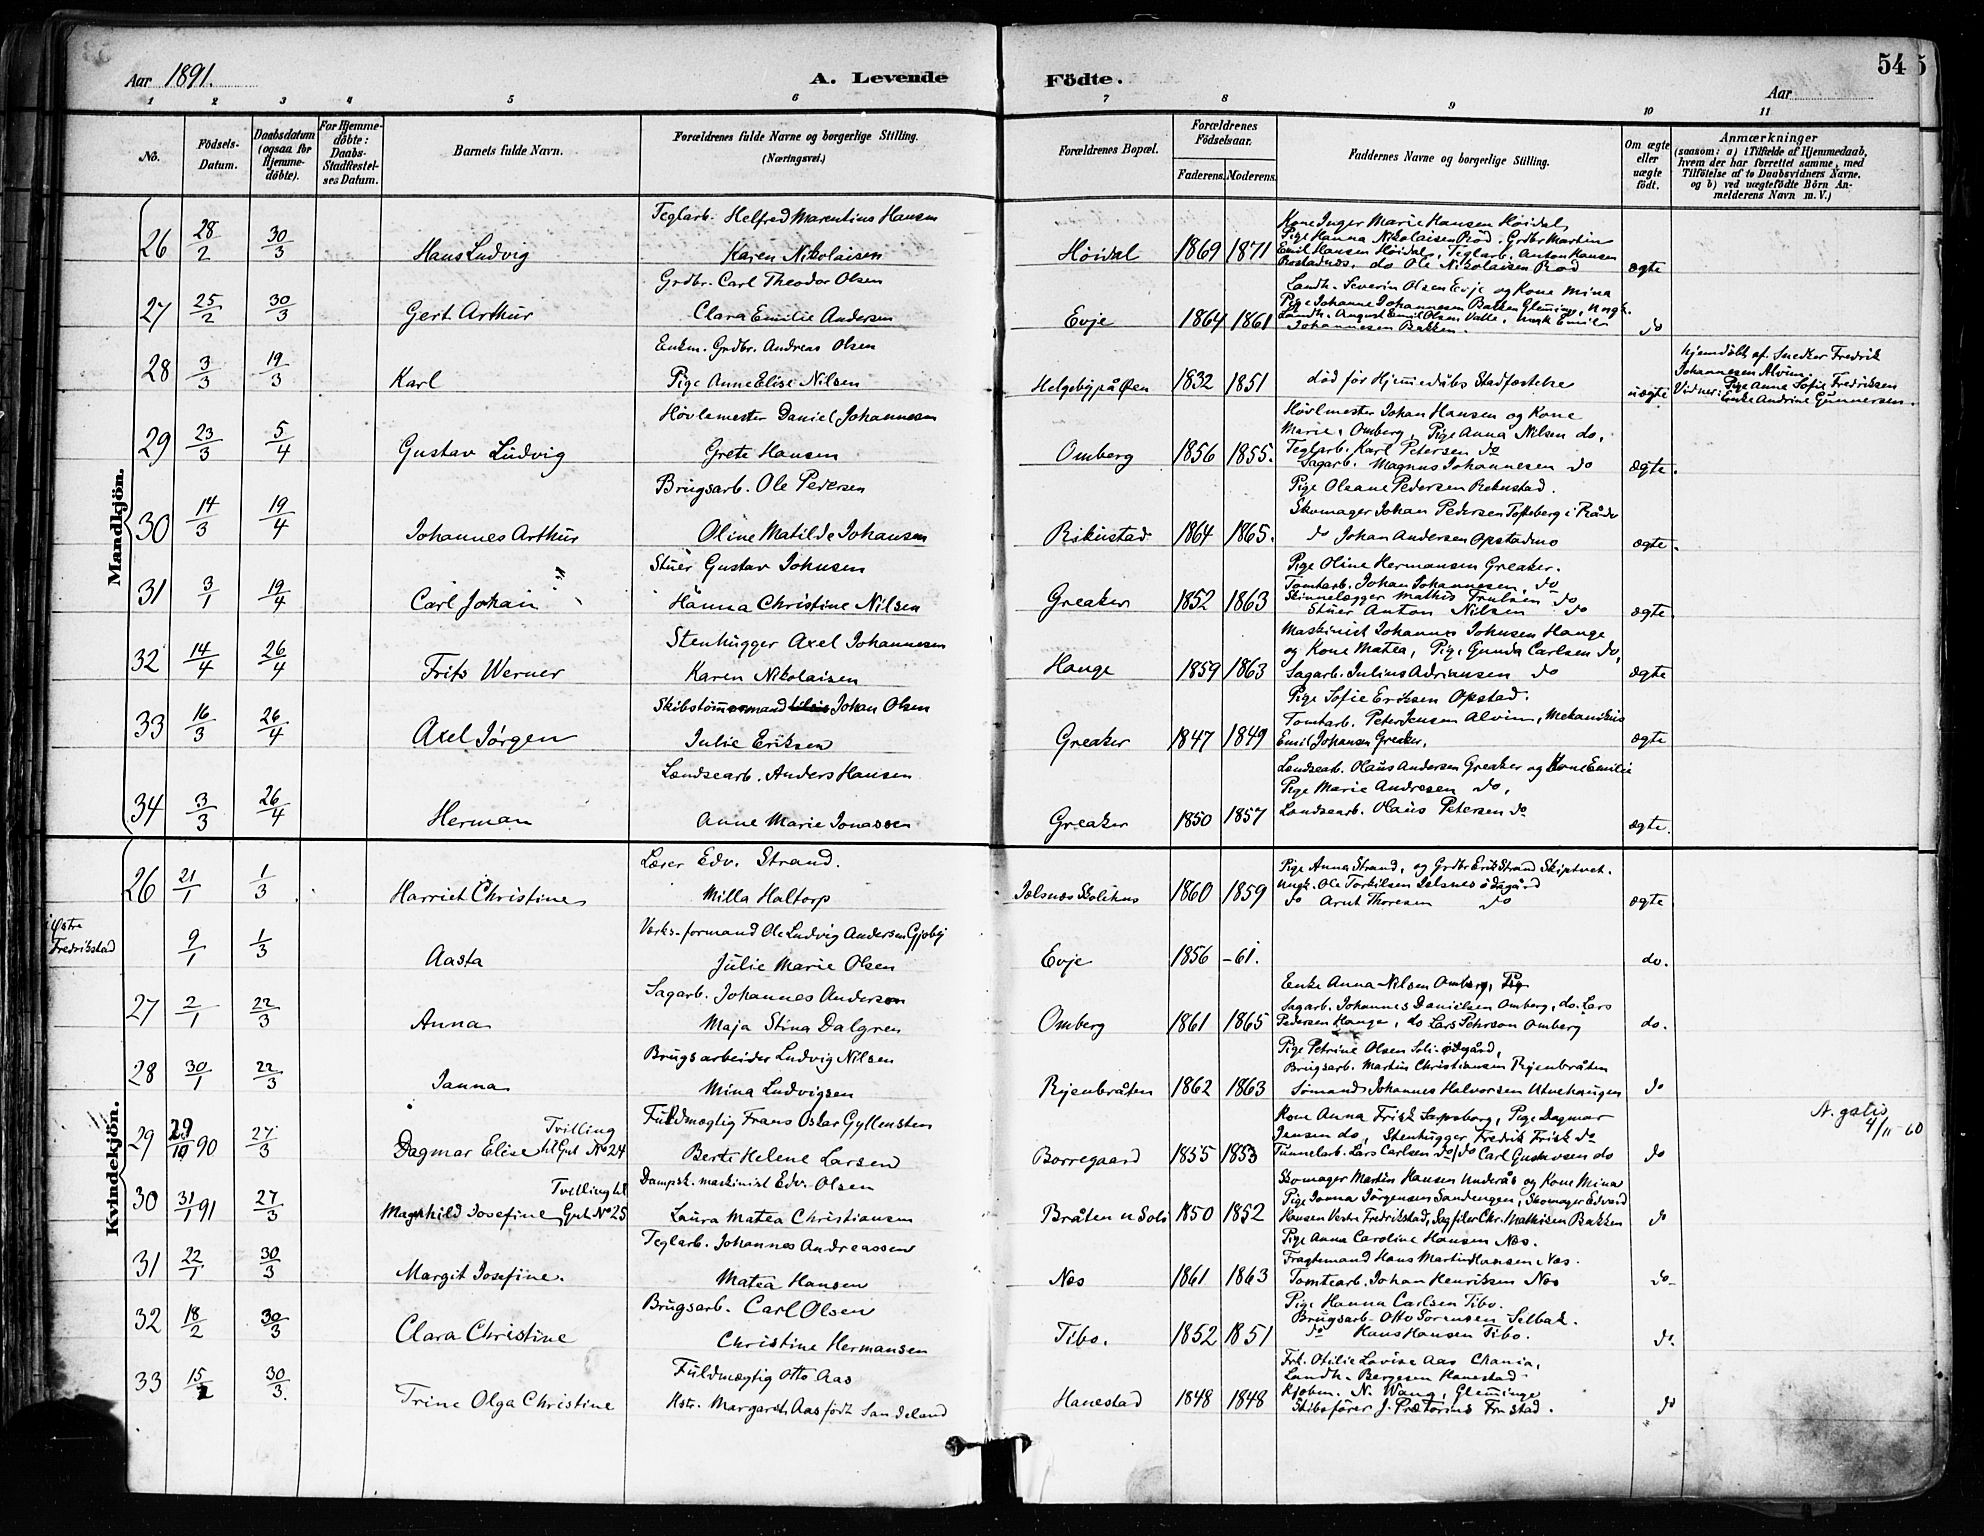 Aar 1891.
A. Levende
Födte.
54
5
Aar
1 2 3 4 5 6 7 8 9 10 11
No.
Födsels-
Datum.
Daabsdatum
(ogsaa for
Hjemme-
döbte).
For Hjemme-
döbte:
Daabs-
Stadfæstel-
ses Datum.
Barnets fulde Navn.
Forældrenes fulde Navne og borgerlige Stilling.
(Næringsvei.)
Forældrenes Bopæl.
Forældrenes
Födselsaar.
Faderens. Moderens.
Faddernes Navne og borgerlige Stilling.
Om ægte
eller
uægte
født.
Anmærkninger
(saasom: a) i Tilfælde af Hjemmedaab,
hvem der har forrettet samme, med
Tilföielse af to Daabsvidners Navne.
og b) ved uægtefödte Börn An-
melderens Navn m. V.)
Mandkjön.
Teglarb. Helfred Marentius Hansen
26 28/2 30/3 Hans Ludvig Karen Nikolaisen Höidal 1869 1871
Kone Inger Marie Hansen Höidal,
Pige Hanna Nikolaisen Röd, Grdbr Martin
Emil Hansen Höidal, Teglarb. Anton Hansen
do Ole Nikolaisen Röd ægte
Grdbr. Carl Theodor Olsen
27 25/2 30/3 Gert Arthur Clara Emilie Andersen Evje 1864 1861
Landh. Severin Olsen Evje og Kone Mina
Pige Johanne Johannesen Bakken Glemminge, Ungk.
Landh. August Emil Olsen Valle, Ungk Emil
Johannesen Bakken. do
Enkm. Grdbr. Andreas Olsen
28 3/3 19/3 Karl Pige Anne Elise Nilsen Helgebypå Öen 1832 1851 död för Hjemmedåbs Stadfæstelse uægte
Hjemdöbt af Snedker Fredrik
Johannesen Alvim.
Vidner: Pige Anne Sofie Fredriksen
Enke Andrine Gunnersen.
Hövlemester Daniel Johannesen
29 23/3 5/4 Gustav Ludvig Grete Hansen Omberg 1856 1855.
Hövlmester Johan Hansen og Kone
Marie, Omberg, Pige Anna Nilsen do,
Teglarb. Karl Petersen do
Sagarb. Magnus Johannesen do ægte.
Brugsarb. Ole Pedersen
30 14/3 19/4 Johannes Arthur Oline Matilde Johansen Rikustad 1864 1865.
Pige Oleane Pedersen Rekustad.
Skomager Johan Pedersen Tofteberg i Råde
do Johan Andersen Opstadmo ægte.
Stuer Gustav Johnsen
31 3/1 19/4 Carl Johan Hanna Christine Nilsen Greaker 1852 1863
Pige Oline Hermansen Greaker.
Tomtarb. Johan Johannesen, do
Skinnelægger Mathis Trulsen do
Stuer Anton Nilsen do ægte.
Stenhugger Axel Johannesen
32 14/4 26/4 Frits Werner Karen Nikolaisen Hauge 1859 1863
Maskinist Johannes Johnsen Hauge
og Kone Matea, Pige Gunda Carlsen do,
Sagarb. Julius Adriansen do ægte
Skibstömmermand Johan Olsen
33 16/3 26/4 Axel Jörgen Julie Eriksen Greaker 1847 1849
Pige Sofie Eriksen Opstad.
Tomtarb. Peter Jensen Alvim, Mekanikus
Emil Johansen Greaker, ægte
Lændsearb. Anders Hansen
34 3/3 26/4 Herman Anne Marie Jonassen Greaker 1850 1857
Lændsearb. Olaus Andersen Greaker og Kone Emilie
Pige Marie Andresen do,
Landsearb. Olaus Petersen do ægte.
Kvindekjön.
Lærer Edv. Strand.
26 21/1 1/3 Harriet Christine Milla Haltorp Jelsnæs Skolehus 1860 1859
Pige Anna Strand, og Grdbr Erik Strand Skiptvet.
Ungk. Ole Torkilsen Jelsnes ödegård
do Arnt Thoresen do ægte
i Östre
Fredrikstad
Værks-formand Ole Ludvig Andersen Gjöbij
9/1 1/3 Aasta Julie Marie Olsen Evje 1856 -61. do.
Sagarb. Johannes Anderson
27 2/1 22/3 Anna Maja Stina Dalgren Omberg 1861 1865
Enke Anna Nilsen Omberg, Pig
Sagarb. Johannes Danielsen Omberg, do. Lars
Pedersen Hauge, do Lars Pehrson Omberg do.
Brugsarbeider Ludvig Nilsen
28 30/1 22/3 Janna Mina Ludvigsen Rijenbråten 1862 1863
Pige Petrine Olsen Soli-ödegård,
Brugsarb. Martin Christiansen Rijenbråten
Sömand Johannes Halvorsen Utnehaugen do
Fuldmægtig Frans Oskar Gyllensten
29 29/10 90 27/3 Dagmar Elise Tvilling til Gut No 24 Berte Helene Larsen Borregaard 1855 1853
Kone Anna Frisk Sarpsborg, Pige Dagmar
Jensen do, Stenhugger Fredrik Frisk do
Tunnelarb. Lars Carlsen do, do Carl Gustavsen do do
4/11 60
Dampsk. maskinist Edv. Olsen
30 31/1 91 27/3 Magnhild Josefine Tvilling til Gut No 25 Laura Matea Christiansen Bråten u Soli 1850 1852
Skomager Martin Hansen Underås og Kone Mina
Pige Janna Jörgensen Sandengen, Skomager Edvard
Hansen Vestre Fredrikstad, Sagfiler Chr. Mathisen Bakken do
Teglarb. Johannes Andreassen
31 22/1 30/3 Margit Josefine. Matea Hansen Næs 1861 1863
Pige Anna Caroline Hansen Næs.
Fragtemand Hans Martin Hansen Næs.
Tomtearb. Johan Henriksen Næs do
Brugsarb. Carl Olsen
32 18/2 30/3 Clara Christine Christine Hermansen Tibo. 1852 1851
Pige Hanna Carlsen Tibo.
Brugsarb. Otto Torensen Selbak.
do Hans Hansen Tibo. do.
Fuldmægtig Otto Aas
33 15/2 30/3. Trine Olga Christine Hstr. Margareth Aas födt Sandeland Hanestad 1848 1848
Frk. Otilie Lovise Aas
Landh. Bergesen Hanestad
Kjöbm. N. Wang, Glemminge
Skibsförer J. Prætorius Frstad. do